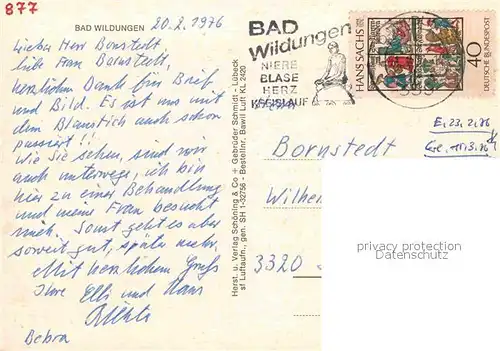 877
BAD WILDUNGEN 20.2.1976
Lieber Herr Bornstedt,
liebe Frau Bornstedt,
herzlichen Dank für Brief
und Bild. Es ist uns mit
dem Blaustich auch schon
passiert!!
Wie Sie sehen, sind wir
auch unterwegs, ich bin
hier zu einer Behandlung
und meine Frau besucht
mich. Sonst geht es aber
soweit gut, später mehr.
Mit herzlichem Gruß
Ihre Elli und Hans
Bebra
Herst. u. Verlag Schöning & Co + Gebrüder Schmidt - Lübeck
sf Luftaufn., gen. SH 1-32756 - Bestellnr. Bawil Luft KL 2420
BAD
Wildungen
NIERE
BLASE
HERZ
KREISLAUF
HANS SACHS
40
DEUTSCHE BUNDESPOST
E. 23.2.76
Ge. 11.3.76
Bornstedt
Wilhe
3320
privacy protection
Datenschutz